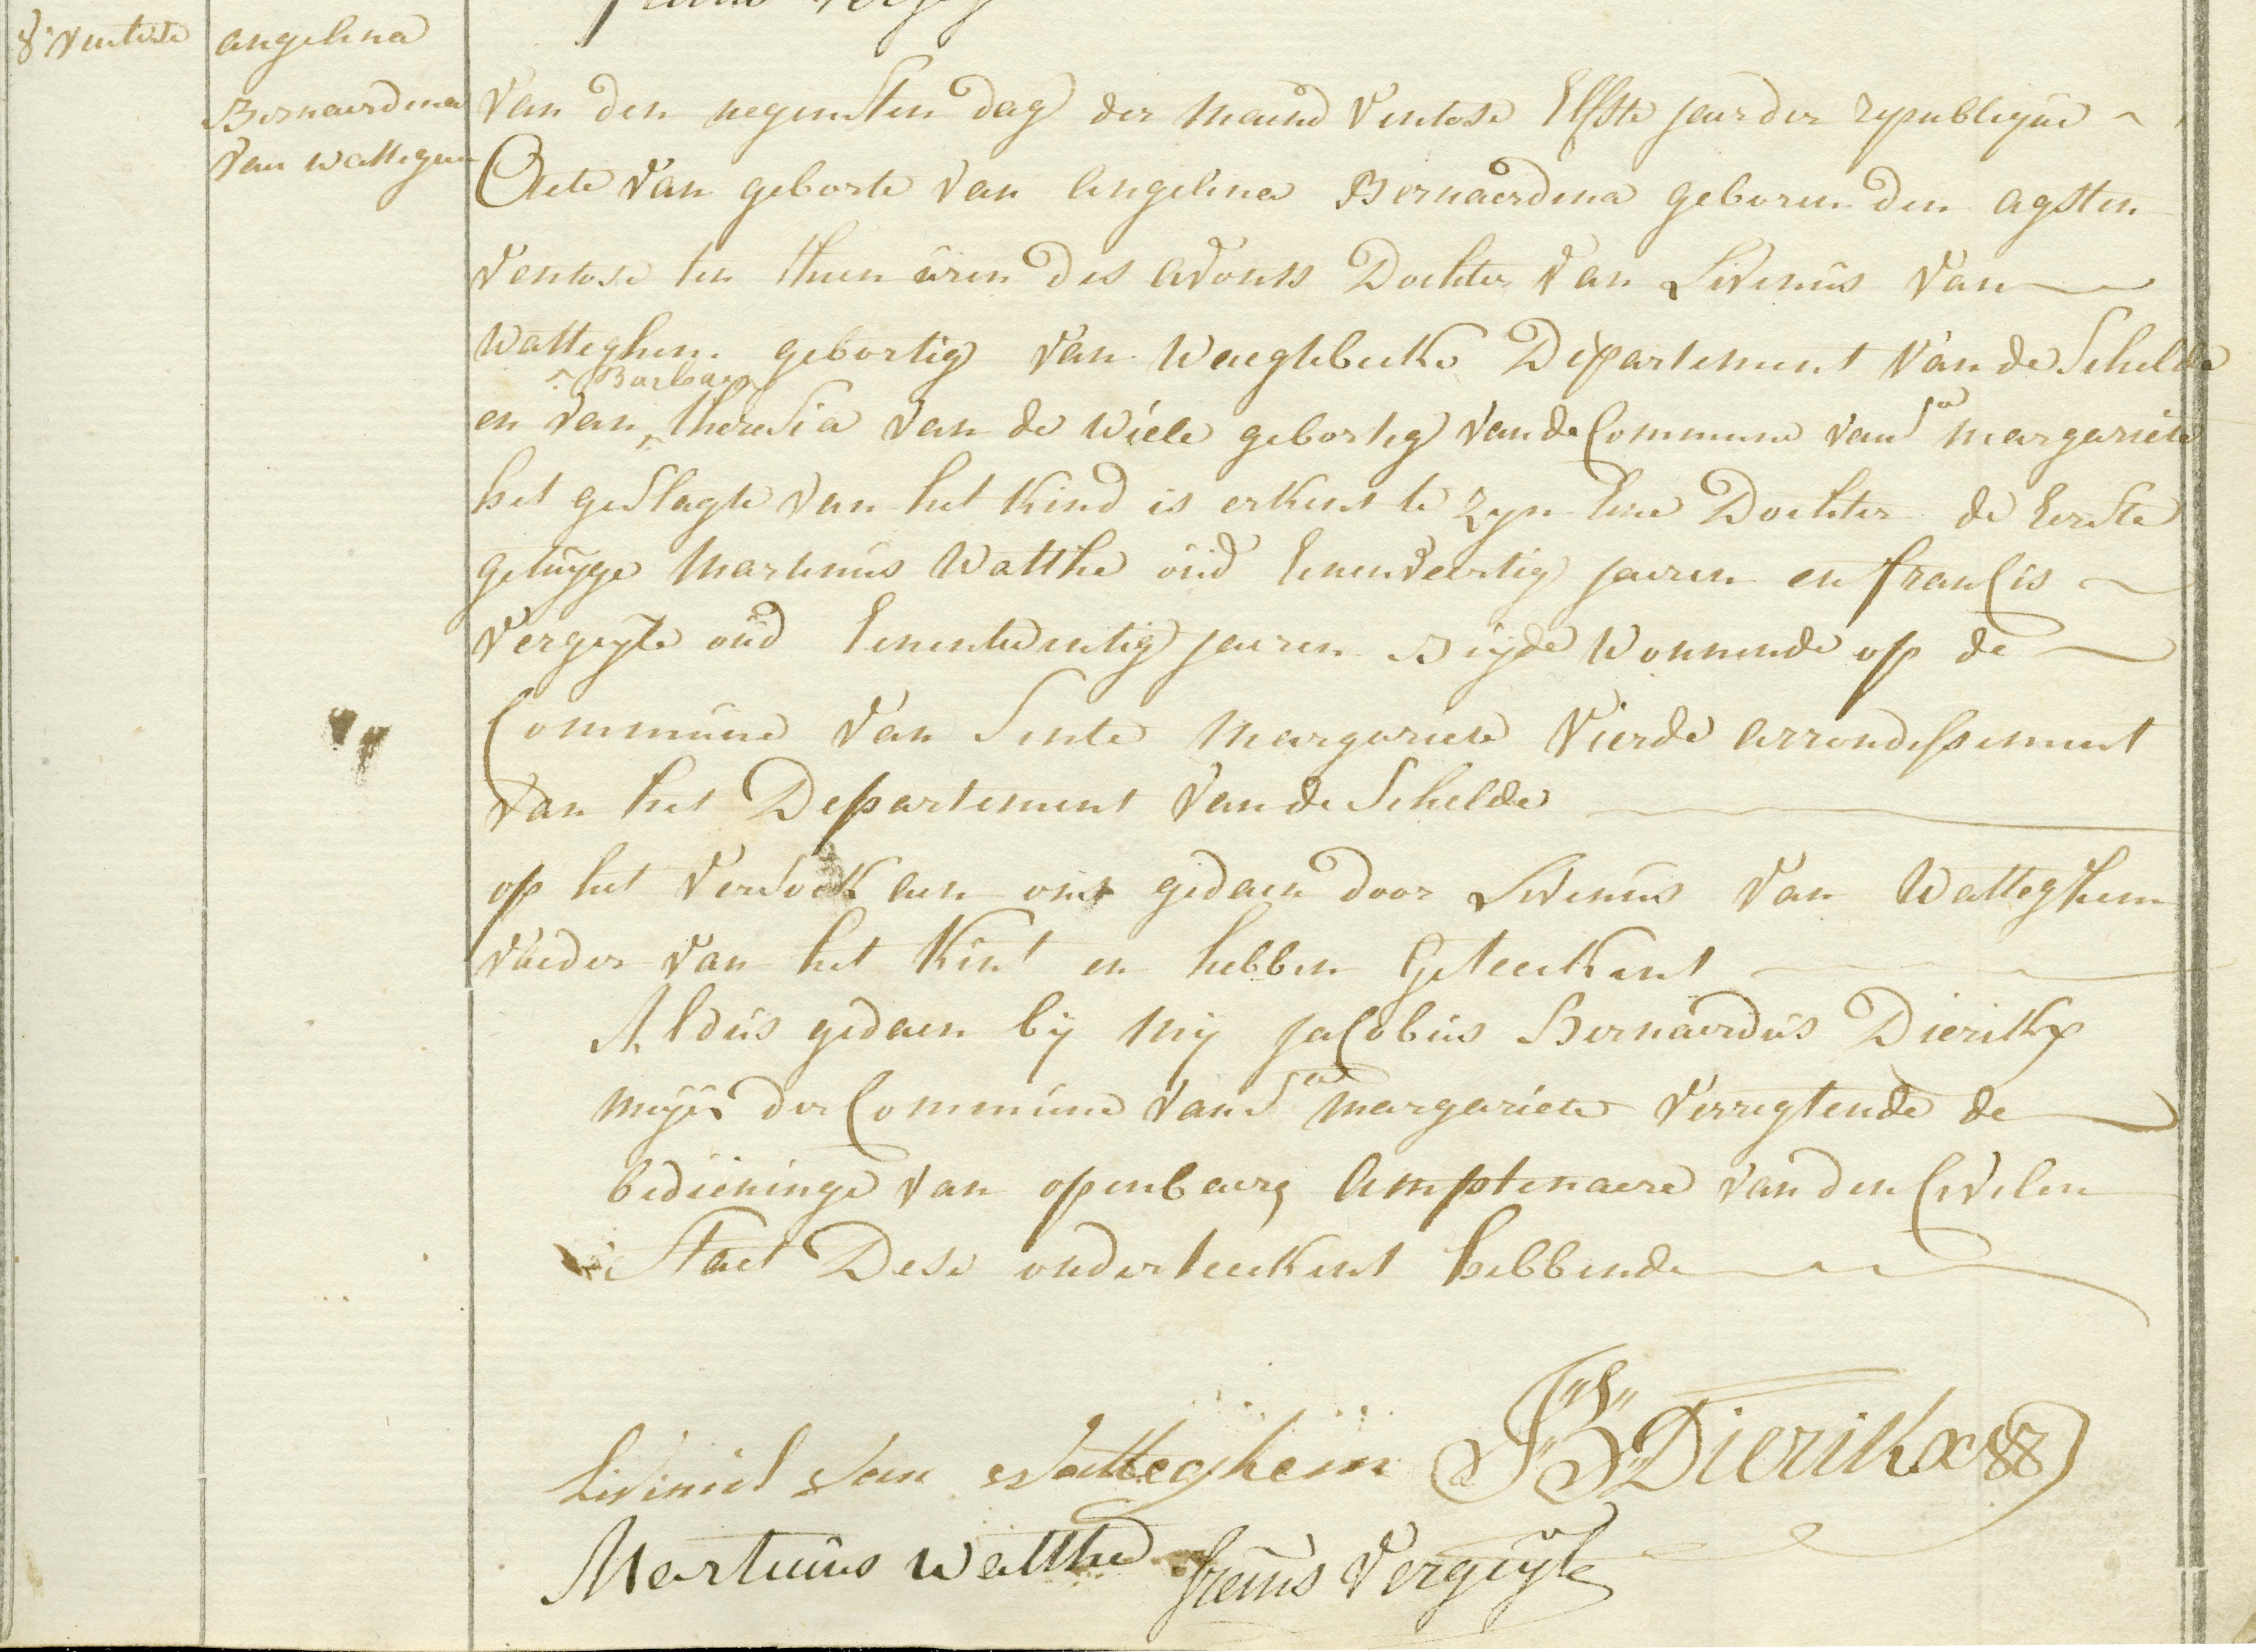 8 Ventose
angelina
Bernaerdina
Van Watteghem
Van den negensten dag der maend Ventose Elfste jaer der republique
Acte Van geborte van Angelina Bernaerdina geboren den agsten
Ventose ten thien uren des avonts Dochter Van Livinus Van
Watteghem gebortig Van Waeghbeeke Departement Van de Schelde
Barbara
en Van theresia Van de Wiele gebortig Van de Commune van Sa margariete
het geslagte van het Kind is erkent te zyn Eene Dochter de Eerste
getuyge Martinus Watthe oud Eenenveertig jaeren en franCis
Vergeyle oud Eenentwentig jaeren Beyde Wonnende op de
Commune Van Sente Margariete Vierde arrondissement
Van het Departement Van de Schelde
op het Versoek aen ons gedaen door Livinus Van Watteghem
Vaeder Van het Kint en hebben Geteekent
Aldus gedaen by my JaCobus Bernaerdus Dierikx
meyer der Commune Van Sa Margariete Verregtende de
bedieninge Van openbaere Amptenaere van den Civilen
Staet Dese onderteekent hebbende
Livinus van Watteghem JB Dierikx
Martinus Watthe
francis Vergeyle